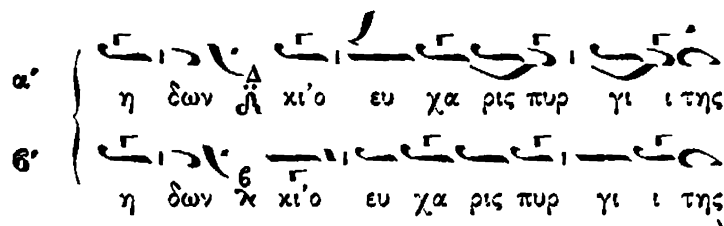 α΄ η δων Δ κι'ο ευ χα ρις πυρ γι ι της
β΄ η δων β κι'ο ευ χα ρις πυρ γι ι της